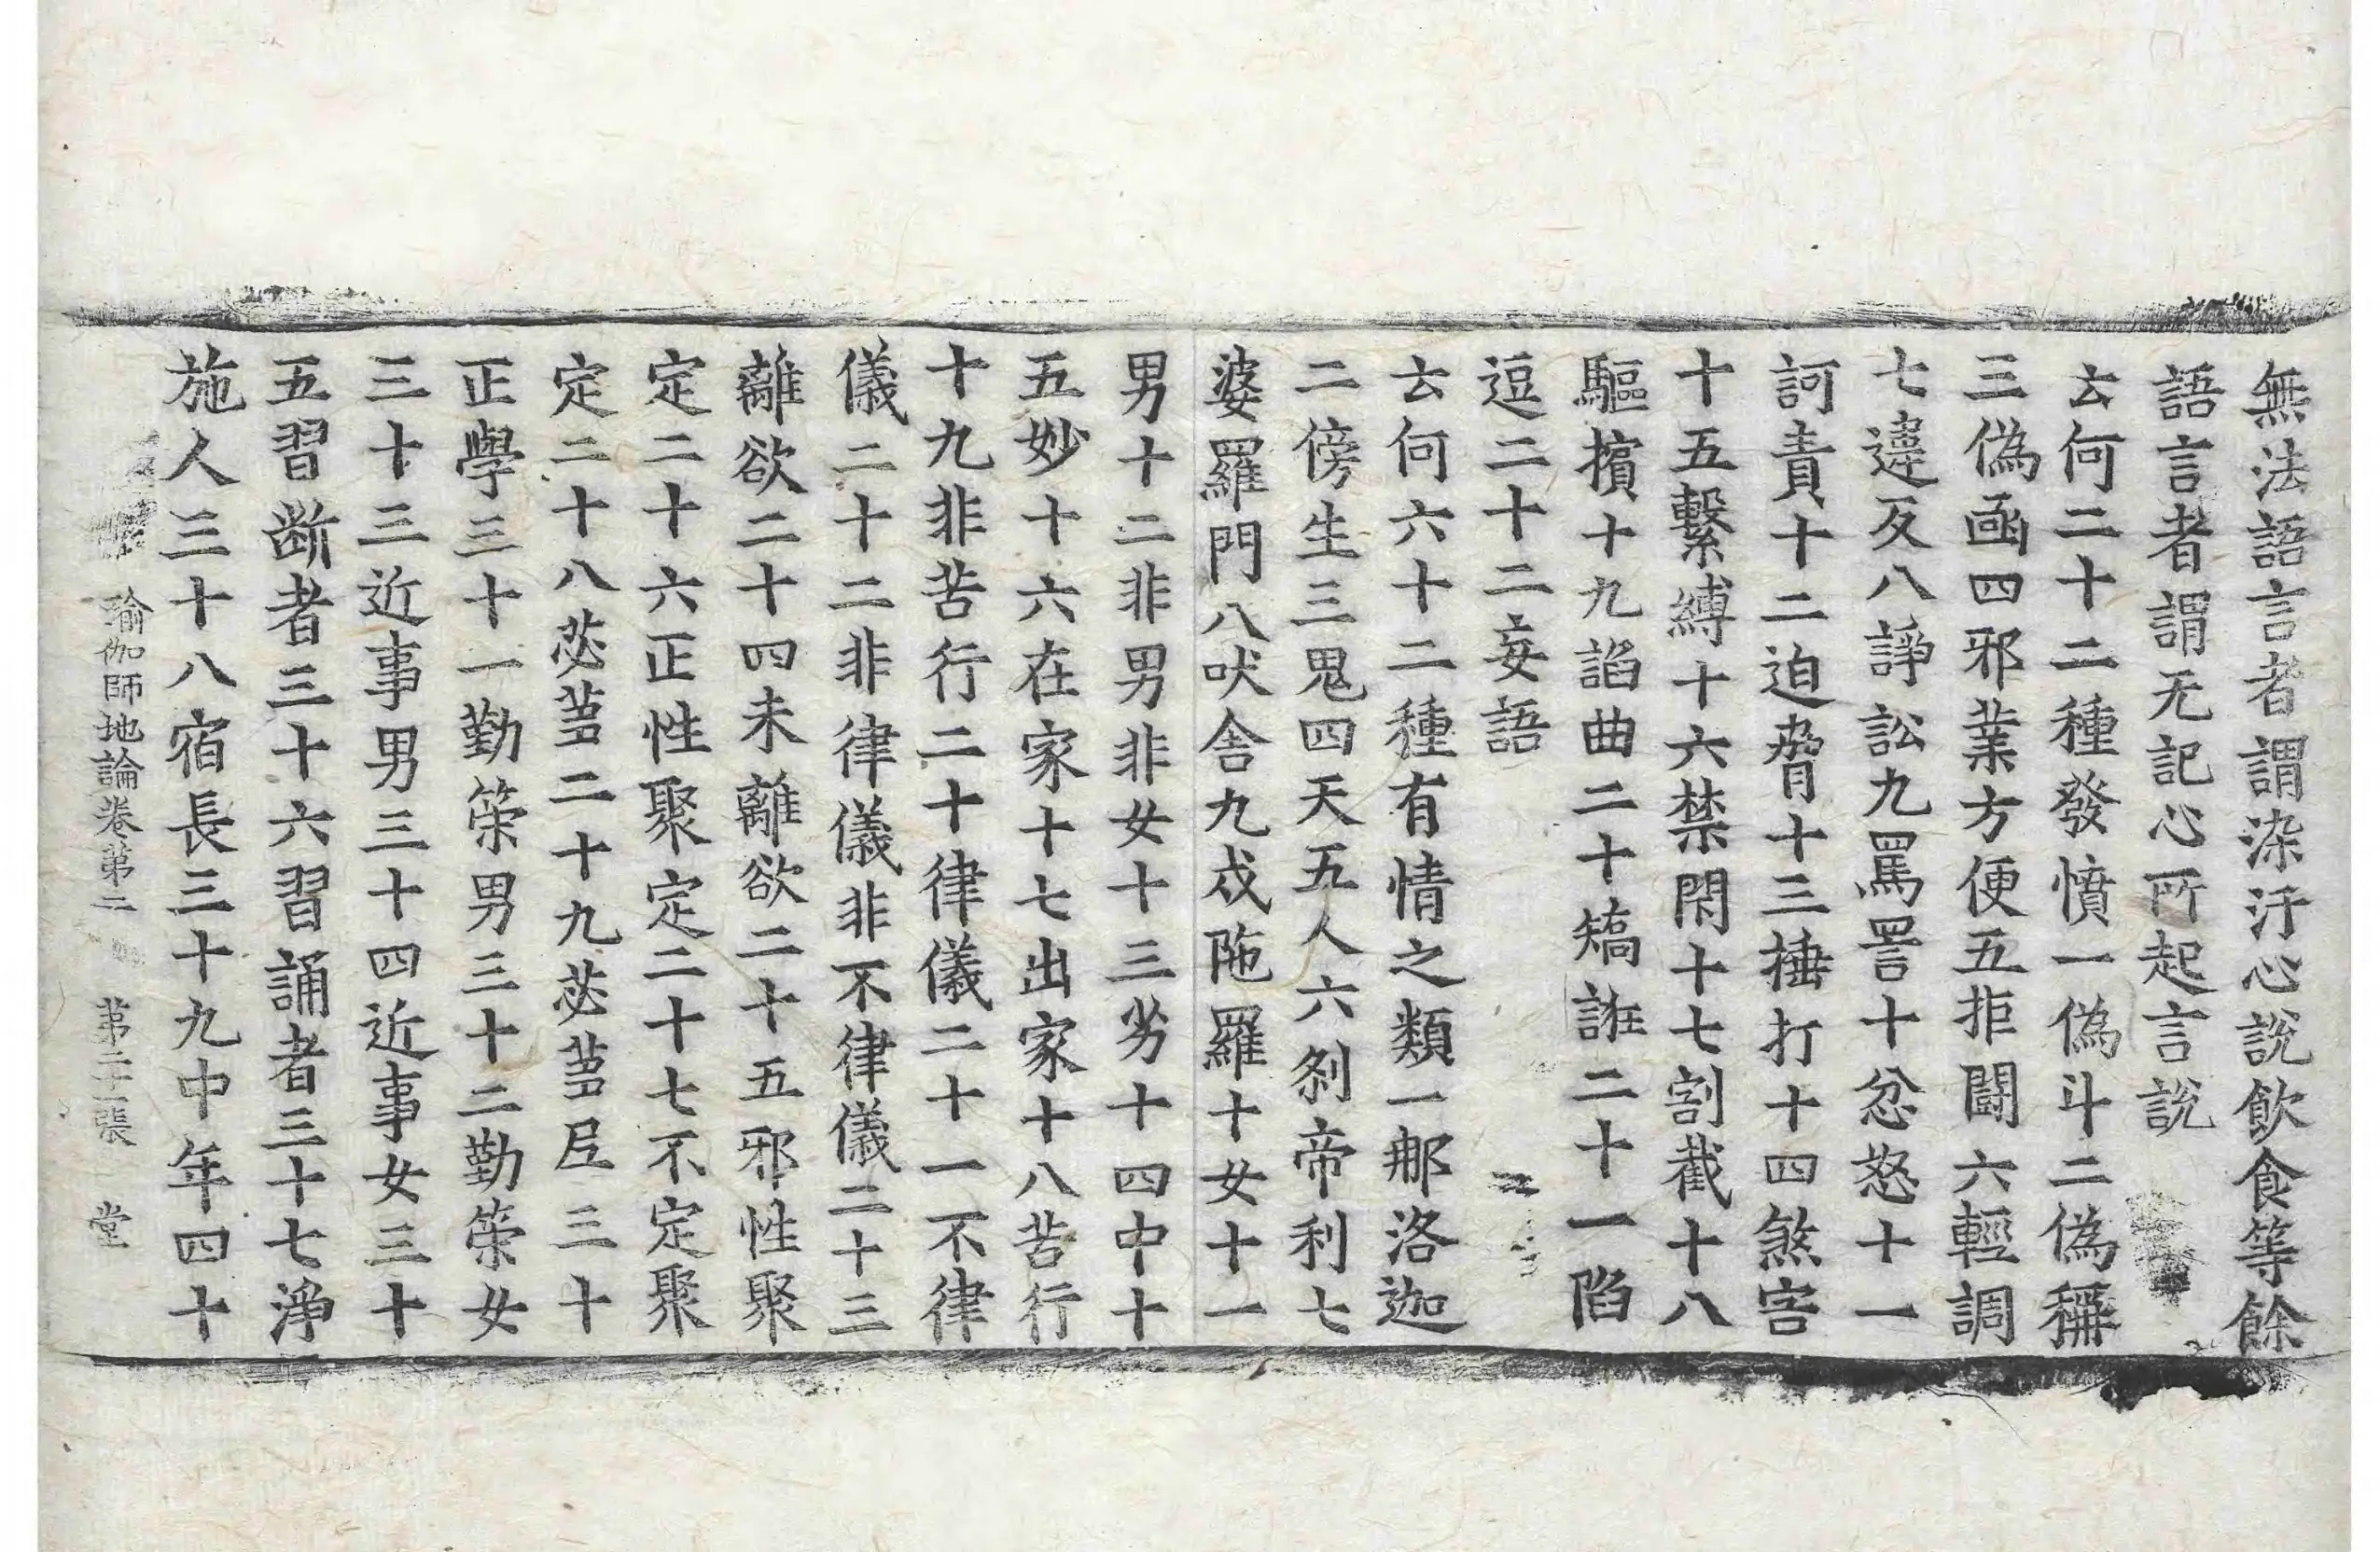 無法語言者謂染汙心說飲食等餘
語言者謂无記心所起言說
云何二十二種發憤一偽斗二偽稱
三偽函四邪業方便五拒鬪六輕調
七違反八諍訟九罵詈十忿怒十一
訶責十二迫脅十三捶打十四煞害
十五繫縛十六禁閇十七割截十八
驅擯十九諂曲二十矯誑二十一陷
逗二十二妄語
云何六十二種有情之類一那洛迦
二傍生三鬼四天五人六剎帝利七
婆羅門八吠舍九戍陁羅十女十一
男十二非男非女十三劣十四中十
五妙十六在家十七出家十八苦行
十九非苦行二十律儀二十一不律
儀二十二非律儀非不律儀二十三
離欲二十四未離欲二十五邪性聚
定二十六正性聚定二十七不定聚
定二十八苾蒭二十九苾蒭尼三十
正學三十一勤策男三十二勤策女
三十三近事男三十四近事女三十
五習斷者三十六習誦者三十七淨
施人三十八宿長三十九中年四十
瑜伽師地論卷第二 第二十一張 堂